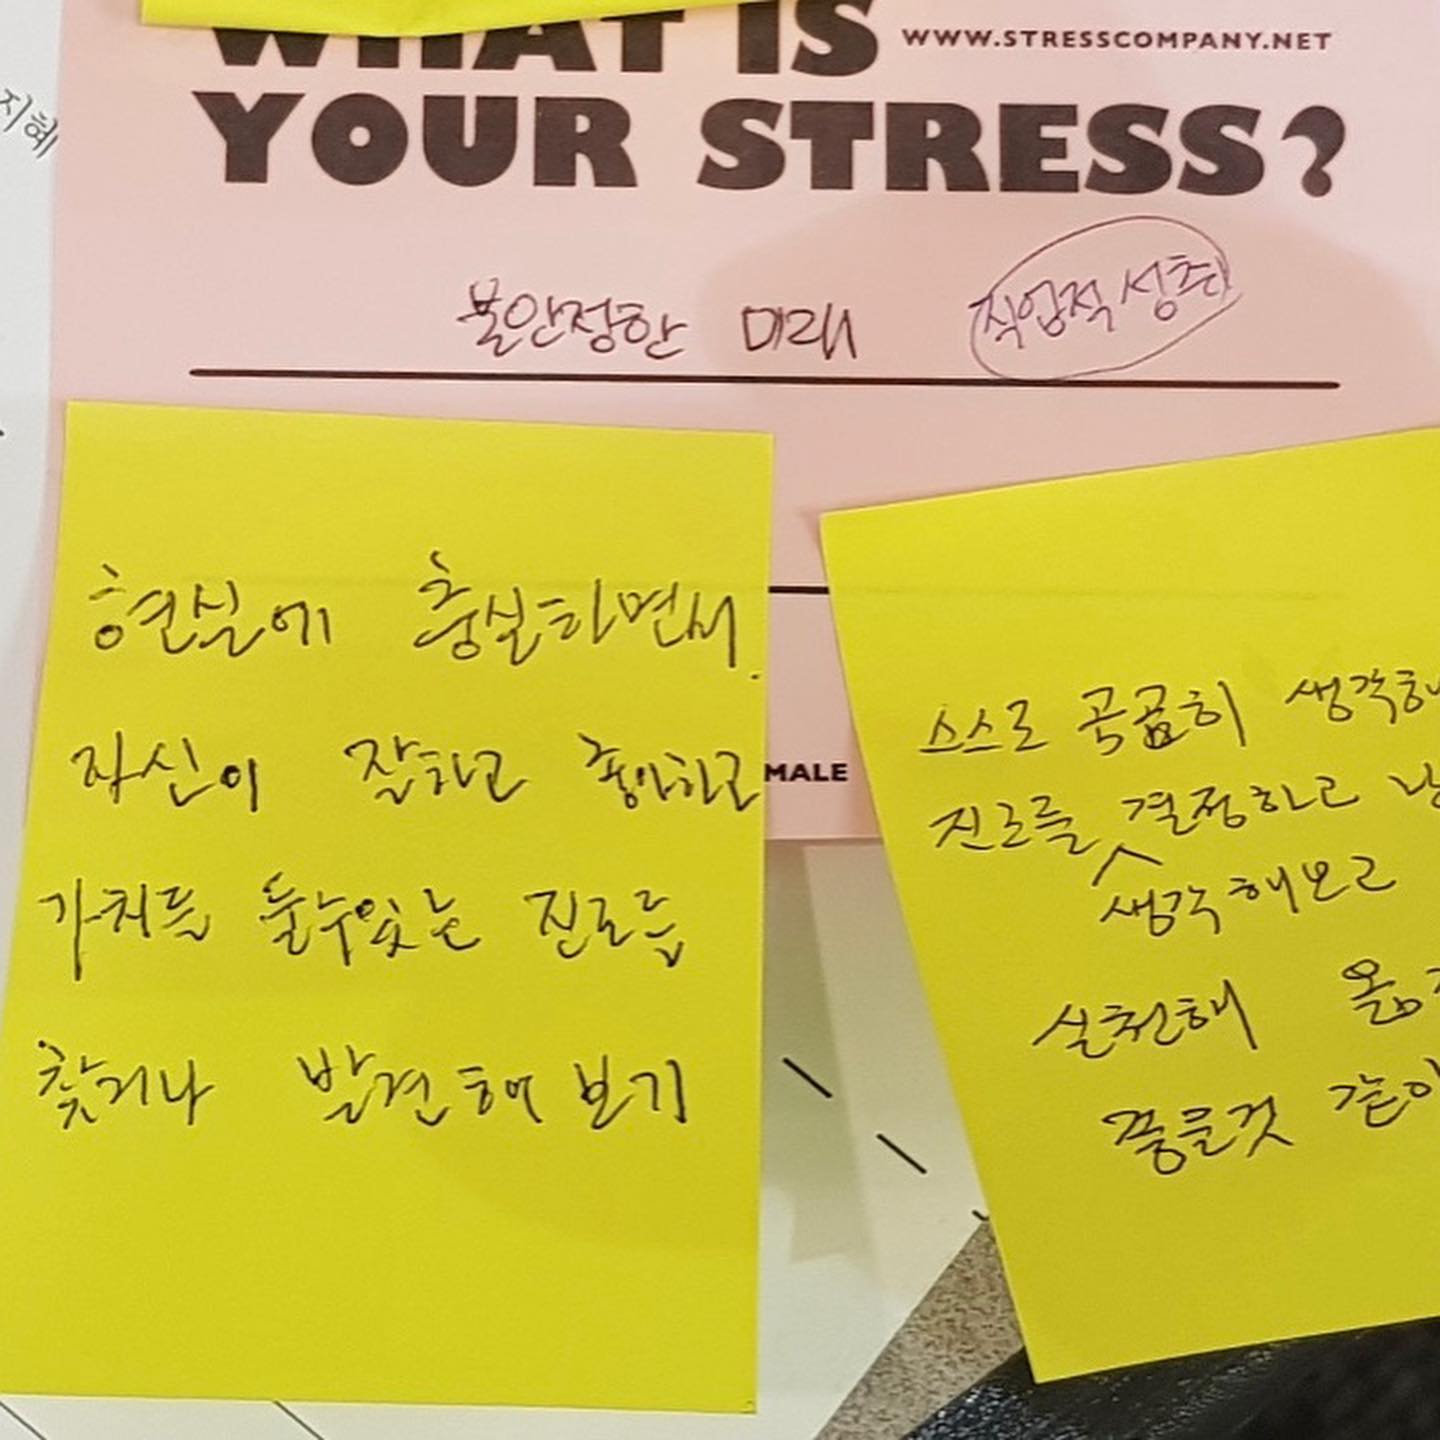 WHAT IS
WWW.STRESSCOMPANY.NET
YOUR STRESS?
지혜
불안정한 미래 직업적 성취
현실에 충실하면서
자신이 잘하고 좋아하고
가치를 둘수있는 진로를
찾거나 발견해 보기
MALE
스스로 곡곰히
진로를 결정하고
생각해보고
실천해